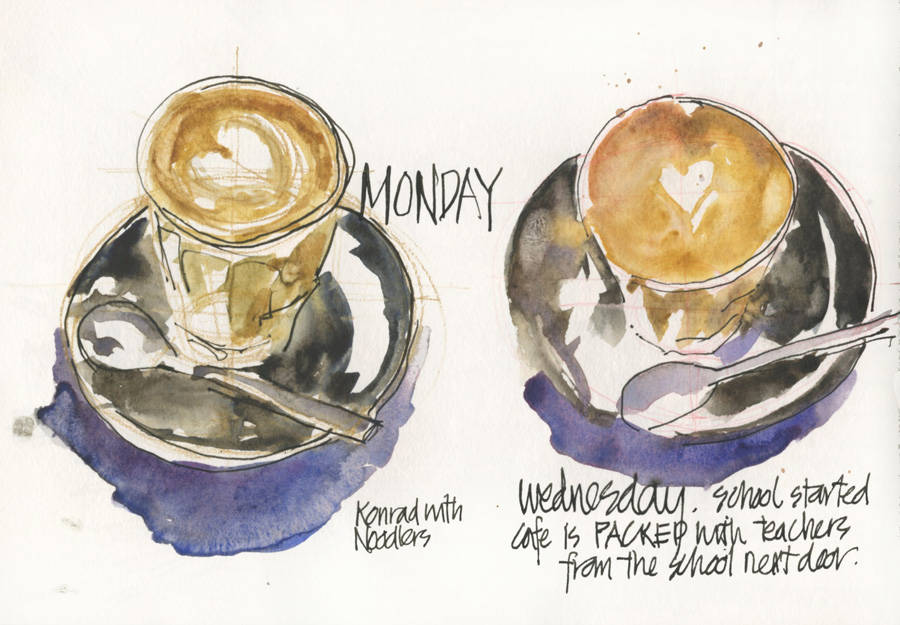 MONDAY
Konrad with
Noodlers
Wednesday. School started
cafe is PACKED with teachers
from the school next door.